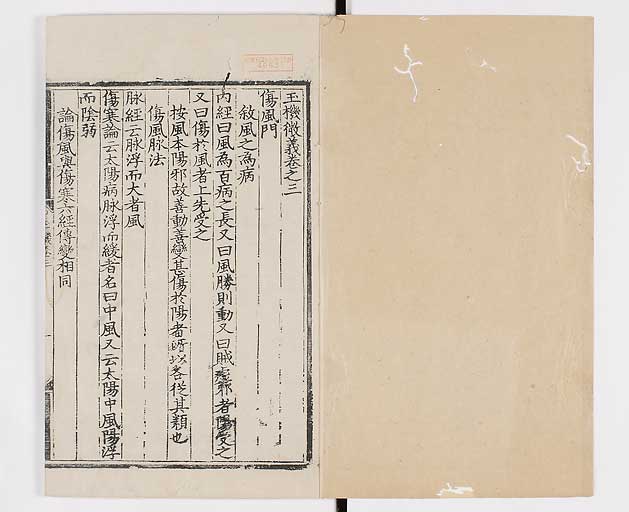 玉機微義卷之三
傷風門
敘風之為病
內經曰風為百病之長又曰風勝則動又曰賊風邪者陽受之
又曰傷於風者上先受之
按風本陽邪故善動善變甚傷於陽者所以各從其類也
傷風脉法
脉經云脉浮而大者風
傷寒論云太陽病脉浮而緩者名曰中風又云太陽中風陽浮
而陰弱
論傷風與傷寒六經傳變相同